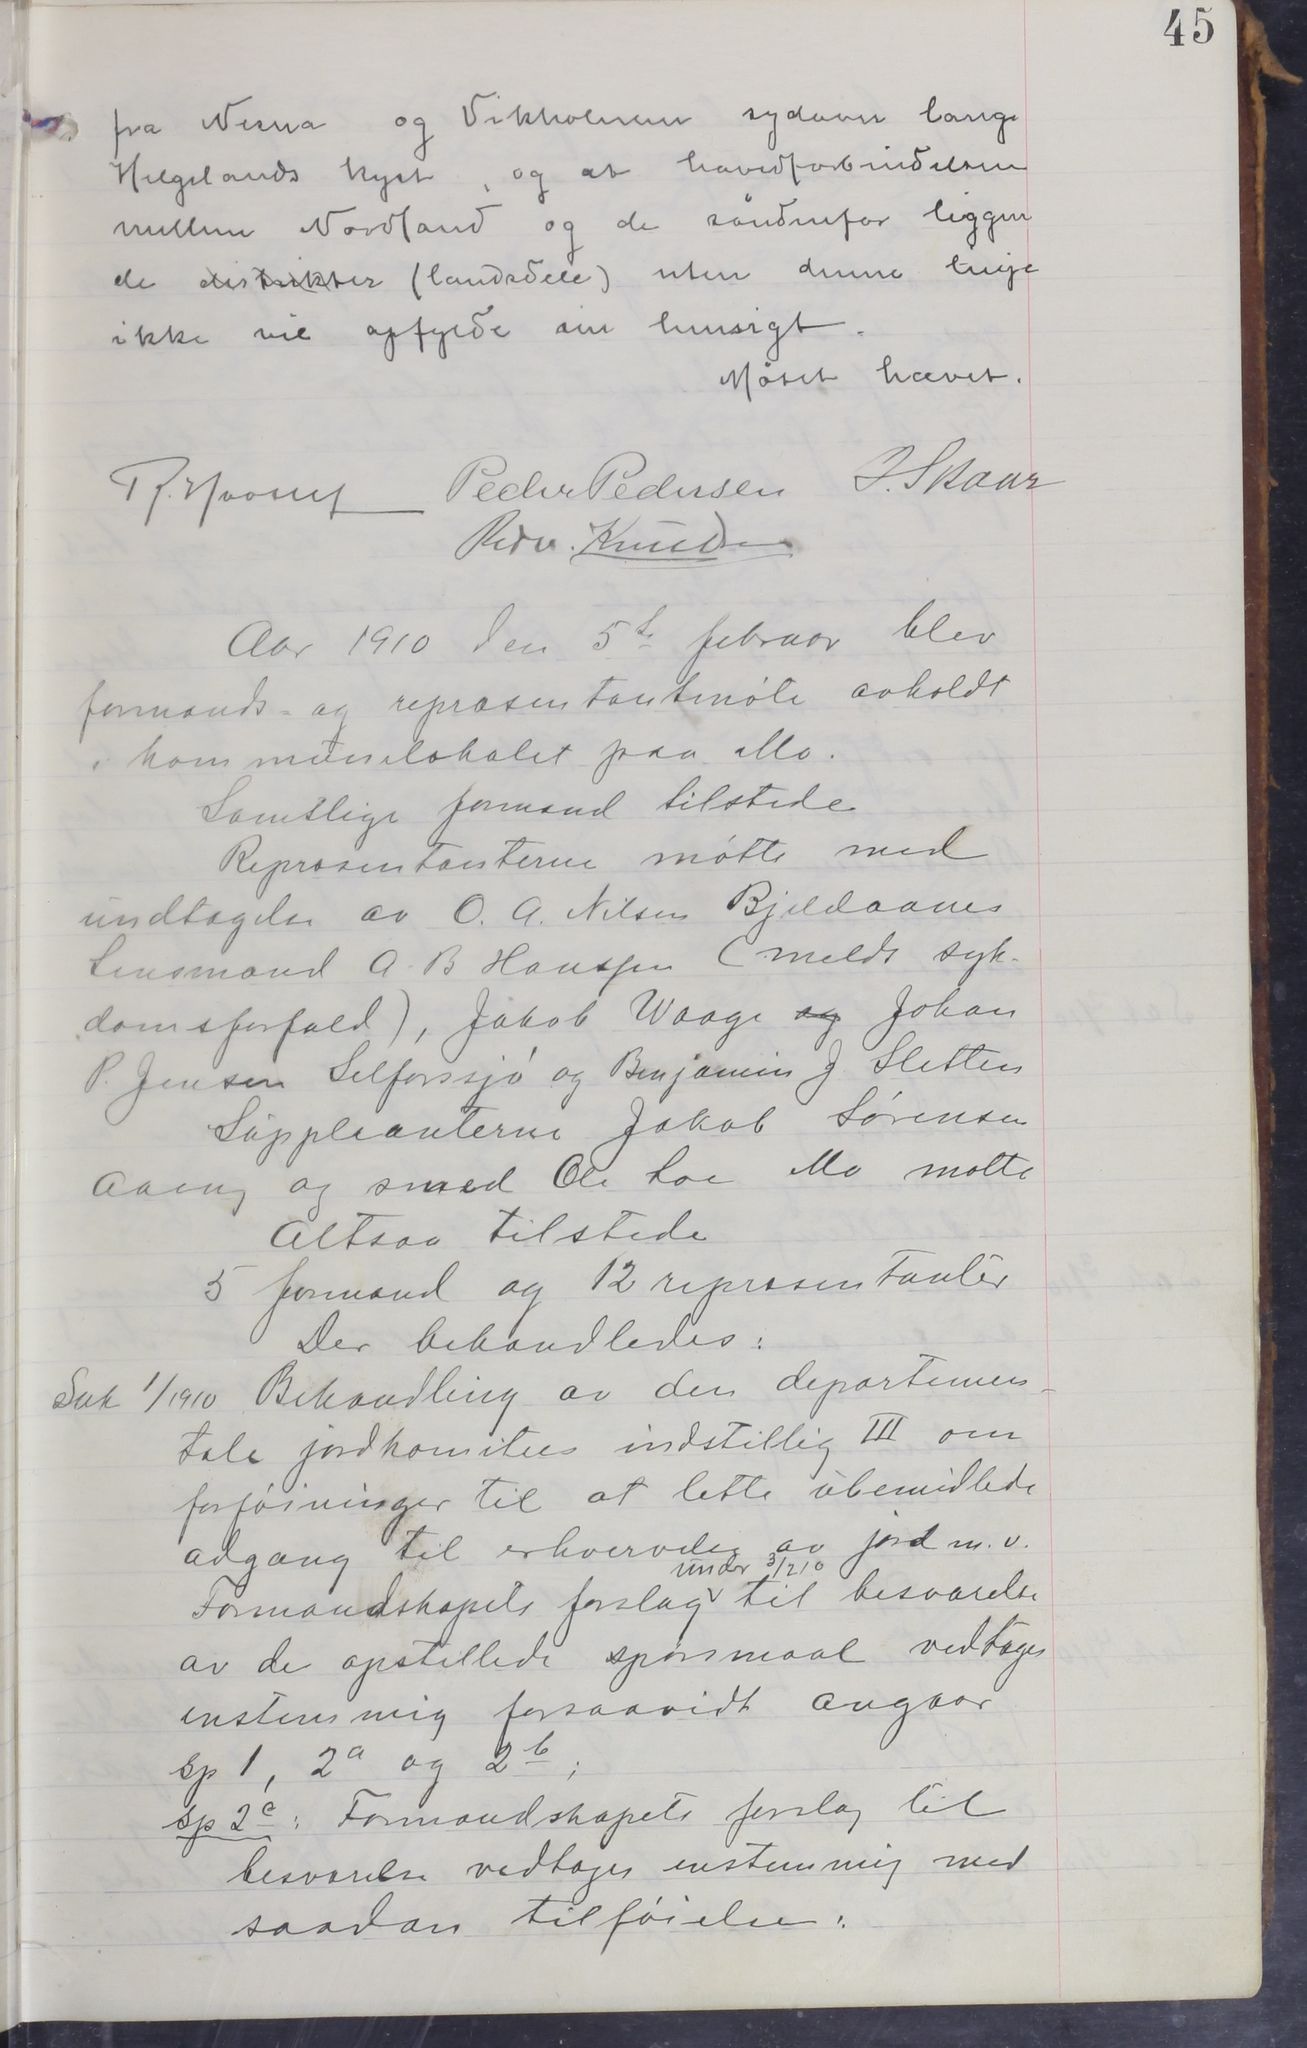 45
fra Nesna og Vikholmen sydover langs
Helgelands kyst, og at hovedforbindelsen
mellem Nordland og de söndenfor liggen
de distrikter (landsdele) uten denne linje
ikke vil opfylde sin hensigt.
Mötet hævet.
Peder Pedersen J. Skaar
Pedr. Knudsen
Aar 1910 den 5te februar blev
formands- og repræsentantmöte avholdt
i kommunelokalet paa Mo.
Samtlige formænd tilstede
Repræsentanterne mötte med
undtagelse av O. A. Nilsen Bjeldaanes
Lensmand A. B Hanssen (meldt syk-
domsforfald), Jakob Waage og Johan
P. Jensen Selforssjö og Benjamin J. Sletten
Suppleanterne Jakob Sörensen
Aaeng og smed Ole Loe Mo mötte
Altsaa tilstede
5 formænd og 12 repræsentanter
Der behandledes:
Sak 1/1910 Behandling av den departemen-
tale jordkomitees indstillig III om
forföininger til at lette ubemidlede
adgang til erhvervelse av jord m. v.
under 3/2 10
Formandskapets forslag til besvarelse
av de opstillede spörsmaal vedtages
enstemmig forsaavidt angaar
sp 1, 2a og 2b;
sp 2c: Formandskapets forslag til
besvarelse vedtages enstemmig med
saadan tilföielse: